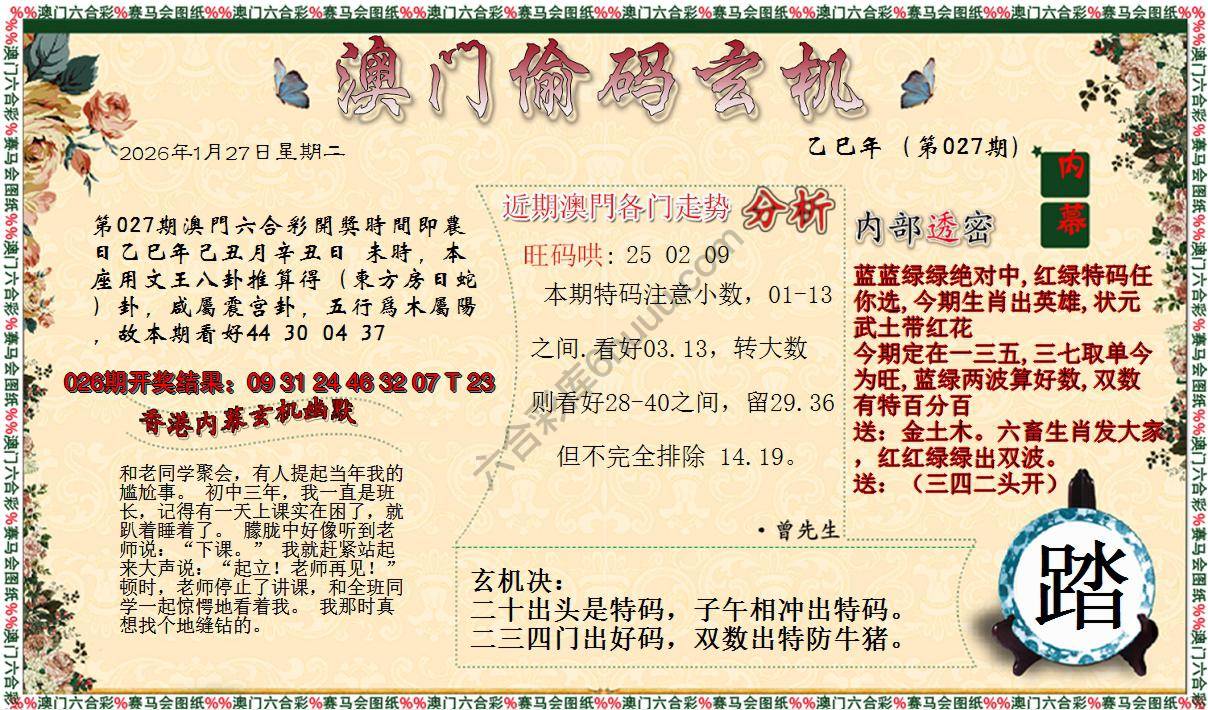 %%澳门六合彩%赛马会图纸%%澳门六合彩%赛马会图纸%%澳门六合彩%赛马会图纸%%澳门六合彩%赛马会图纸%%澳门六合彩%赛马会图纸%%澳门六合彩%赛马会图纸%%
澳门偷码玄机
2026年1月27日星期二
乙巳年（第027期）
内幕
第027期澳門六合彩開獎時間即農
日乙巳年己丑月辛丑日 未時，本
座用文王八卦推算得（東方房日蛇
）卦，咸屬震宫卦，五行爲木屬陽
，故本期看好44 30 04 37
026期开奖结果：09 31 24 46 32 07 T 23
香港内幕玄机幽默
和老同学聚会，有人提起当年我的
尴尬事。 初中三年，我一直是班
长，记得有一天上课实在困了，就
趴着睡着了。 朦胧中好像听到老
师说：“下课。” 我就赶紧站起
来大声说：“起立！老师再见！”
顿时，老师停止了讲课，和全班同
学一起惊愕地看着我。 我那时真
想找个地缝钻的。
近期澳門各门走势 分析
旺码哄: 25 02 09
本期特码注意小数，01-13
之间.看好03.13，转大数
则看好28-40之间，留29.36
但不完全排除 14.19。
·曾先生
内部透密
蓝蓝绿绿绝对中,红绿特码任
你选,今期生肖出英雄,状元
武士带红花
今期定在一三五,三七取单今
为旺,蓝绿两波算好数,双数
有特百分百
送：金土木。六畜生肖发大家
，红红绿绿出双波。
送：（三四二头开）
玄机决：
二十出头是特码，子午相冲出特码。
二三四门出好码，双数出特防牛猪。
踏